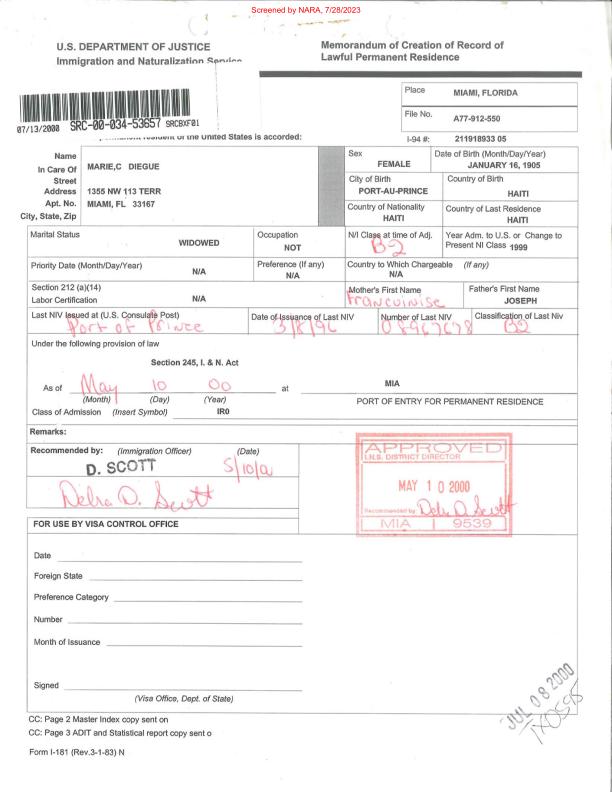 Screened by NARA, 7/28/2023
U.S. DEPARTMENT OF JUSTICE
Immigration and Naturalization Service
Memorandum of Creation of Record of
Lawful Permanent Residence
07/13/2000 SRC-00-034-53657 SRCBXF01
Place MIAMI, FLORIDA
File No. A77-912-550
resident of the United States is accorded:
I-94 #: 211918933 05
Name MARIE,C DIEGUE
In Care Of
Street
Address 1355 NW 113 TERR
Apt. No. MIAMI, FL 33167
City, State, Zip
Sex FEMALE
Date of Birth (Month/Day/Year) JANUARY 16, 1905
City of Birth PORT-AU-PRINCE
Country of Birth HAITI
Country of Nationality HAITI
Country of Last Residence HAITI
Marital Status WIDOWED
Occupation NOT
N/I Class at time of Adj. B-2
Year Adm. to U.S. or Change to
Present NI Class 1999
Priority Date (Month/Day/Year) N/A
Preference (If any) N/A
Country to Which Chargeable (If any) N/A
Section 212 (a)(14)
Labor Certification N/A
Mother's First Name
Father's First Name JOSEPH
Last NIV Issued at (U.S. Consulate Post) Port of Prince
Date of Issuance of Last NIV 3/8/96
Number of Last NIV
Classification of Last Niv B2
Under the following provision of law
Section 245, I. & N. Act
As of May 10 00 at MIA
(Month) (Day) (Year) PORT OF ENTRY FOR PERMANENT RESIDENCE
Class of Admission (Insert Symbol) IR0
Remarks:
Recommended by: (Immigration Officer) (Date)
D. SCOTT
Debra D. Scott
APPROVED
I.N.S. DISTRICT DIRECTOR
MAY 10 2000
Recommended by Debra D. Scott
MIA 9539
FOR USE BY VISA CONTROL OFFICE
Date
Foreign State
Preference Category
Number
Month of Issuance
Signed
(Visa Office, Dept. of State)
JUL 08 2000
CC: Page 2 Master Index copy sent on
CC: Page 3 ADIT and Statistical report copy sent o
Form I-181 (Rev.3-1-83) N